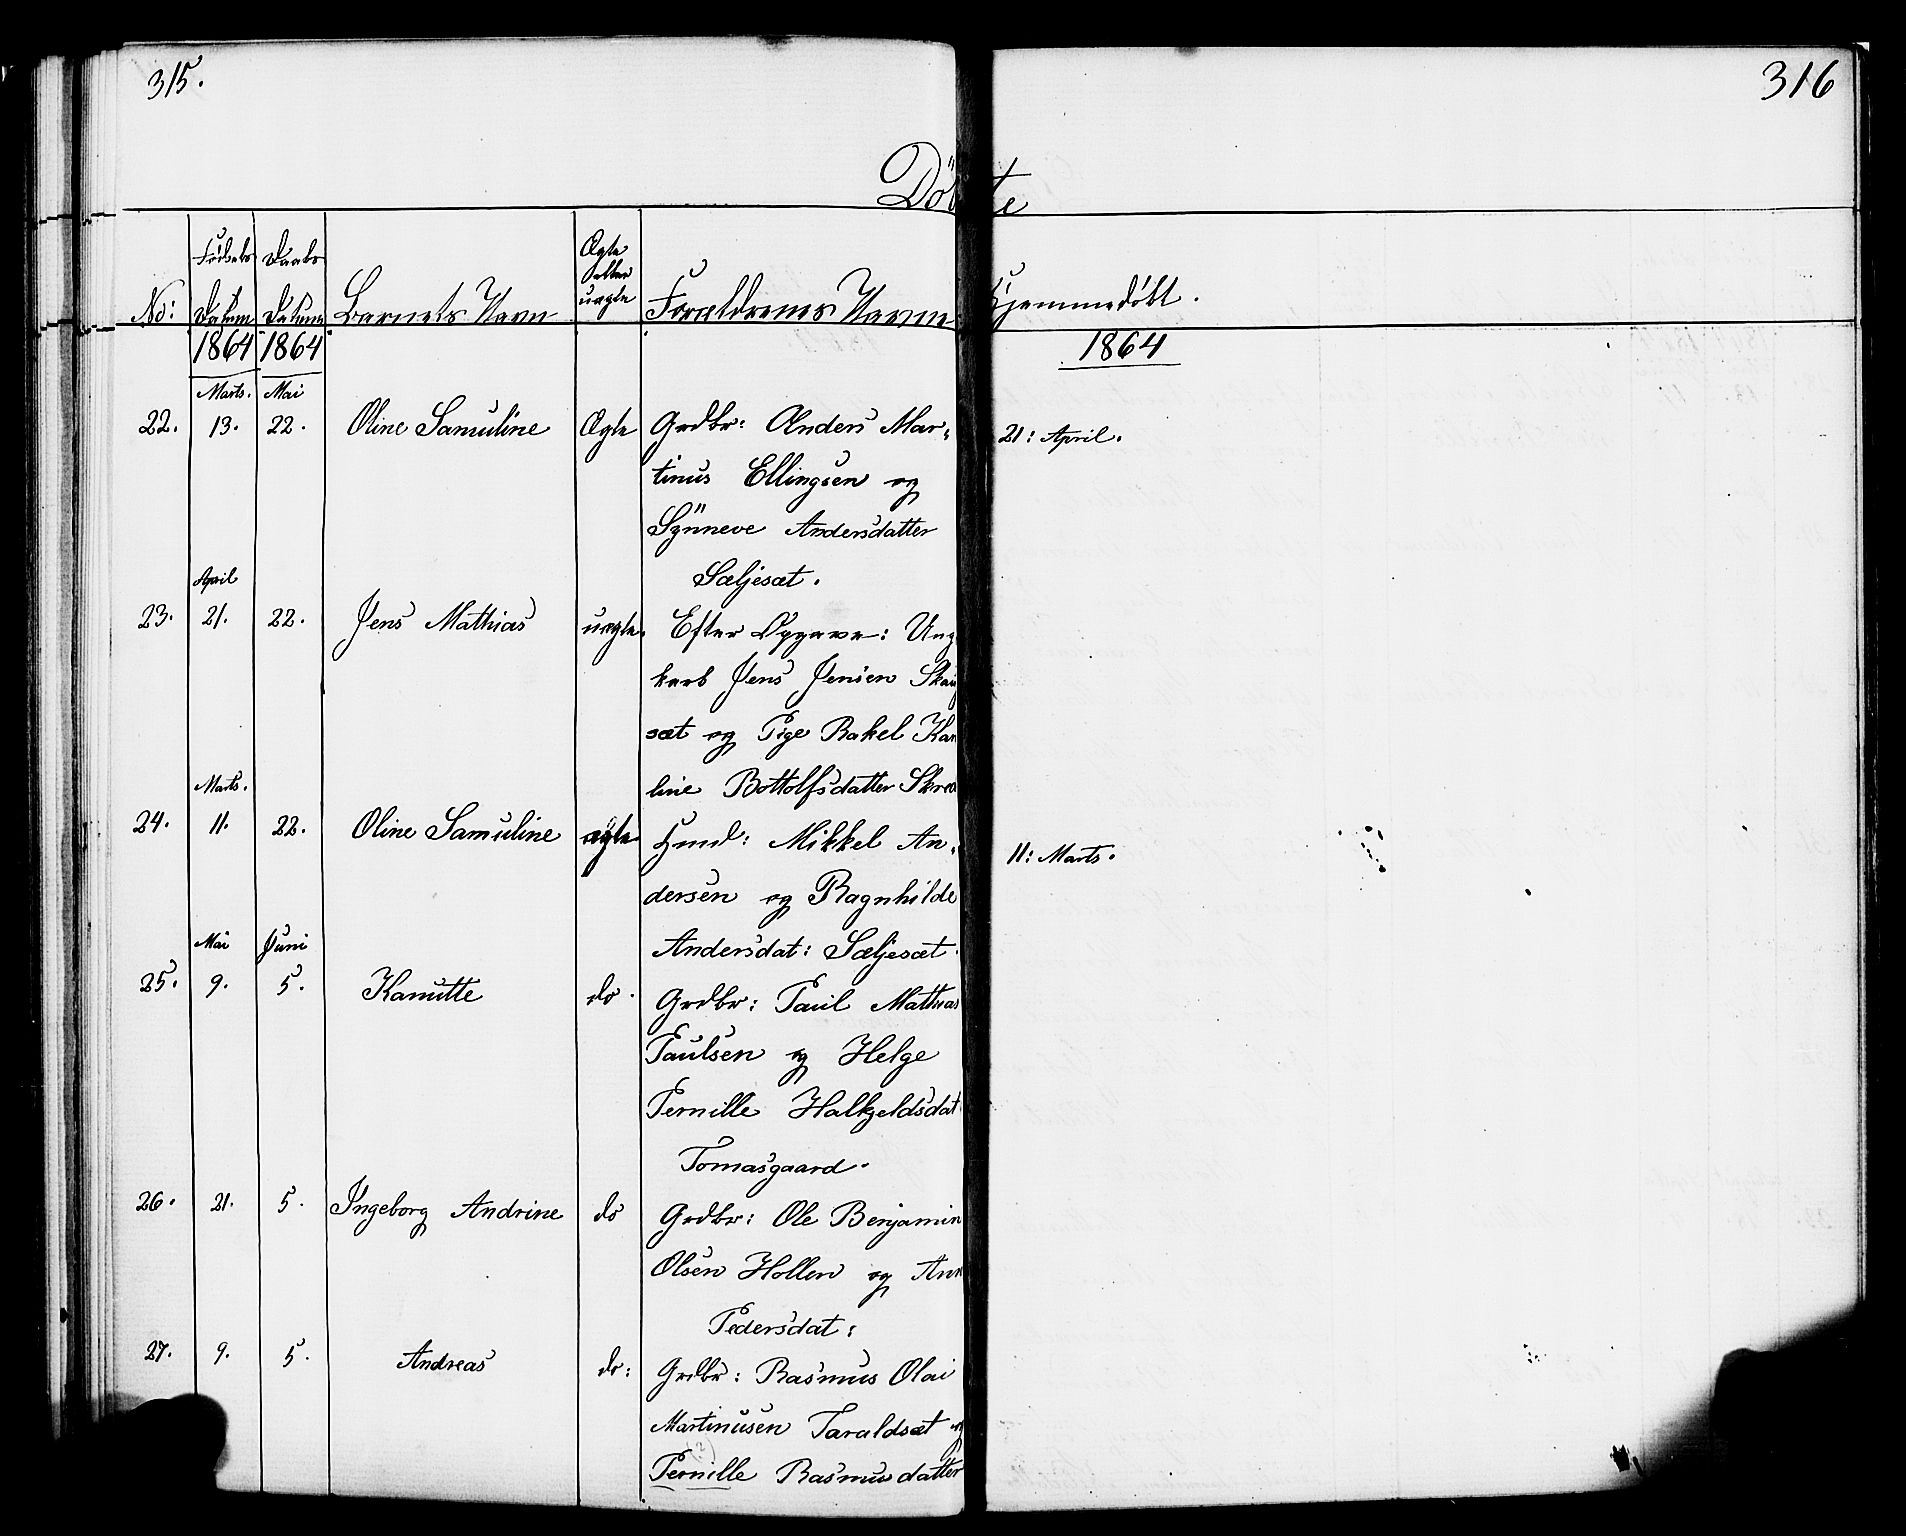 315.
316
Döbte
No:
Fødsels
Datum
Daabs
Datum
Barnets Navn
Ægte
eller
uægte
Forældrenes Navne
Hjemmedøbt.
1864 1864
1864
Marts. Mai
22. 13. 22. Oline Samuline Ægte Grdbr: Anders Mar-
21: April.
tinus Ellingsen og
Synneve Andersdatter
Sæljesæt.
April
23. 21. 22. Jens Mathias uægte. Efter Opgave: Ung
karl Jens Jensen
sæt og Pige Rakel
line Bottolfsdatter
Marts.
24. 11. 22. Oline Samuline ægte Huusm: Mikkel An-
11: Marts.
dersen og Ragnhilde
Andersdat: Sæljesæt.
Mai Juni
25. 9. 5. Kanutte do. Grdbr: Paul Mathias
Paulsen og Helge
Pernille Halkjeldsdat
Tomasgaard.
26. 21. 5. Ingeborg Andrine do Grdbr: Ole Benjamin
Olsen Hollen og Ann
Pedersdat:
27. 9. 5. Andreas do: Grdbr: Rasmus Olai
Martinusen Taraldsæt og
(?)
Pernille Rasmusdatter